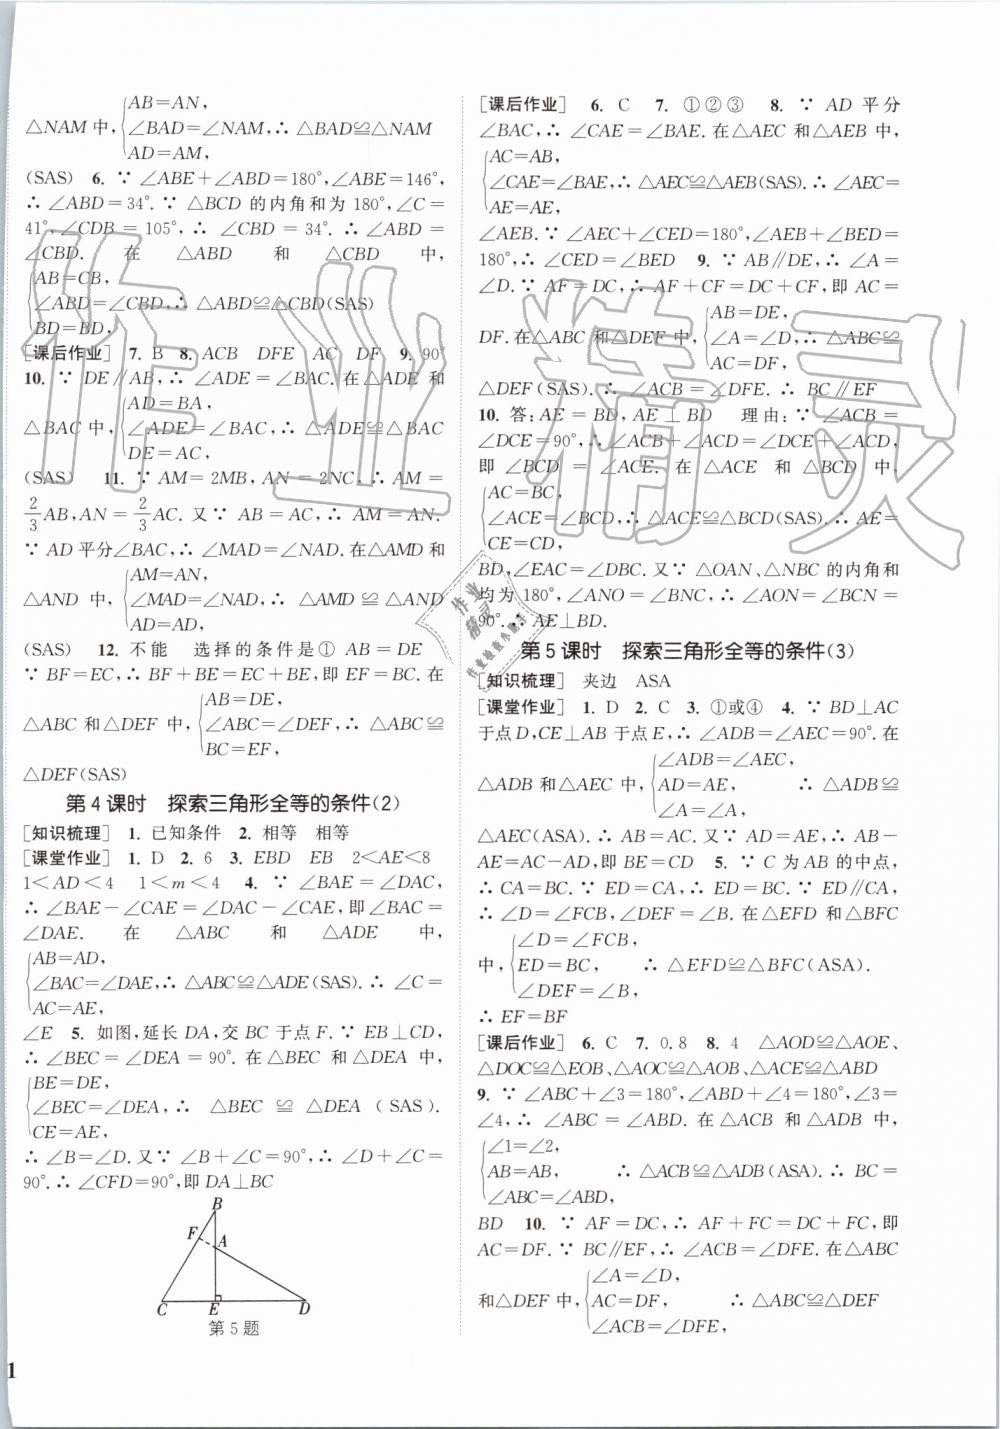 AB=AN,
△NAM中,∠BAD=∠NAM,∴ △BAD≌△NAM
AD=AM,
(SAS) 6. ∵ ∠ABE+∠ABD=180°,∠ABE=146°,
∴ ∠ABD=34°. ∵ △BCD 的内角和为 180°,∠C=
41°,∠CDB = 105°,∴ ∠CBD = 34°. ∴ ∠ABD =
∠CBD. 在 △ABD 和 △CBD 中,
AB=CB,
∠ABD=∠CBD,∴ △ABD≌△CBD(SAS)
BD=BD,
[课后作业] 7. B 8. ACB DFE AC DF 9. 90°
10. ∵ DE∥AB,∴ ∠ADE=∠BAC. 在△ADE 和
AD=BA,
△BAC中,∠ADE=∠BAC,∴ △ADE≌△BAC
DE=AC,
(SAS) 11. ∵ AM=2MB,AN=2NC,∴ AM=
2/3 AB,AN=2/3 AC. 又∵ AB=AC,∴ AM=AN.
∵ AD平分∠BAC,∴ ∠MAD=∠NAD. 在△AMD和
AM=AN,
△AND 中,∠MAD=∠NAD,∴ △AMD≌△AND
AD=AD,
(SAS) 12. 不能 选择的条件是① AB=DE
∵ BF=EC,∴ BF+BE=EC+BE,即 EF=BC. 在
AB=DE,
△ABC 和△DEF 中,∠ABC=∠DEF,∴ △ABC≌
BC=EF,
△DEF(SAS)
第 4 课时 探索三角形全等的条件(2)
[知识梳理] 1. 已知条件 2. 相等 相等
[课堂作业] 1. D 2. 6 3. EBD EB 2<AE<8
1<AD<4 1<m<4 4. ∵ ∠BAE=∠DAC,
∴ ∠BAE-∠CAE=∠DAC-∠CAE,即∠BAC=
∠DAE. 在 △ABC 和 △ADE 中,
AB=AD,
∠BAC=∠DAE,∴ △ABC≌△ADE(SAS). ∴ ∠C=
AC=AE,
∠E 5. 如图,延长 DA,交 BC 于点 F. ∵ EB⊥CD,
∴ ∠BEC=∠DEA=90°. 在△BEC 和△DEA 中,
BE=DE,
∠BEC=∠DEA,∴ △BEC ≌ △DEA (SAS).
CE=AE,
∴ ∠B=∠D. 又∵ ∠B+∠C=90°,∴ ∠D+∠C=
90°. ∴ ∠CFD=90°,即 DA⊥BC
B
F
A
C
E
D
第 5 题
1
[课后作业] 6. C 7. ①②③ 8. ∵ AD 平分
∠BAC,∴ ∠CAE=∠BAE. 在△AEC 和△AEB 中,
AC=AB,
∠CAE=∠BAE,∴ △AEC≌△AEB(SAS). ∴ ∠AEC=
AE=AE,
∠AEB. ∵ ∠AEC+∠CED=180°,∠AEB+∠BED=
180°,∴ ∠CED=∠BED 9. ∵ AB∥DE,∴ ∠A=
∠D. ∵ AF=DC,∴ AF+CF=DC+CF,即 AC=
AB=DE,
DF. 在△ABC 和△DEF 中,∠A=∠D,∴ △ABC≌
AC=DF,
△DEF(SAS). ∴ ∠ACB=∠DFE. ∴ BC∥EF
10. 答:AE=BD,AE⊥BD 理由:∵ ∠ACB=
∠DCE=90°,∴ ∠ACB+∠ACD=∠DCE+∠ACD,
即 ∠BCD = ∠ACE. 在 △ACE 和 △BCD 中,
AC=BC,
∠ACE=∠BCD,∴ △ACE≌△BCD(SAS). ∴ AE=
CE=CD,
BD,∠EAC=∠DBC. 又∵ △OAN、△NBC 的内角和
均为 180°,∠ANO=∠BNC,∴ ∠AON=∠BCN=
90°. ∴ AE⊥BD.
第 5 课时 探索三角形全等的条件(3)
[知识梳理] 夹边 ASA
[课堂作业] 1. D 2. C 3. ①或④ 4. ∵ BD⊥AC
于点D,CE⊥AB 于点E,∴ ∠ADB=∠AEC=90°. 在
∠ADB=∠AEC,
△ADB 和△AEC 中,AD=AE, ∴ △ADB≌
∠A=∠A,
△AEC(ASA). ∴ AB=AC. 又∵ AD=AE,∴ AB-
AE=AC-AD,即 BE=CD 5. ∵ C 为 AB 的中点,
∴ CA=BC. ∵ ED=CA,∴ ED=BC. ∵ ED∥CA,
∴ ∠D=∠FCB,∠DEF=∠B. 在△EFD 和△BFC
∠D=∠FCB,
中,ED=BC, ∴ △EFD≌△BFC(ASA).
∠DEF=∠B,
∴ EF=BF
[课后作业] 6. C 7. 0.8 8. 4 △AOD≌△AOE、
△DOC≌△EOB、△AOC≌△AOB、△ACE≌△ABD
9. ∵ ∠ABC+∠3=180°,∠ABD+∠4=180°,∠3=
∠4,∴ ∠ABC=∠ABD. 在△ACB 和△ADB 中,
∠1=∠2,
AB=AB, ∴ △ACB≌△ADB(ASA). ∴ BC=
∠ABC=∠ABD,
BD 10. ∵ AF=DC,∴ AF+FC=DC+FC,即
AC=DF. ∵ BC∥EF,∴ ∠ACB=∠DFE. 在△ABC
∠A=∠D,
和△DEF 中,AC=DF, ∴ △ABC≌△DEF
∠ACB=∠DFE,
作业精灵
作业精灵